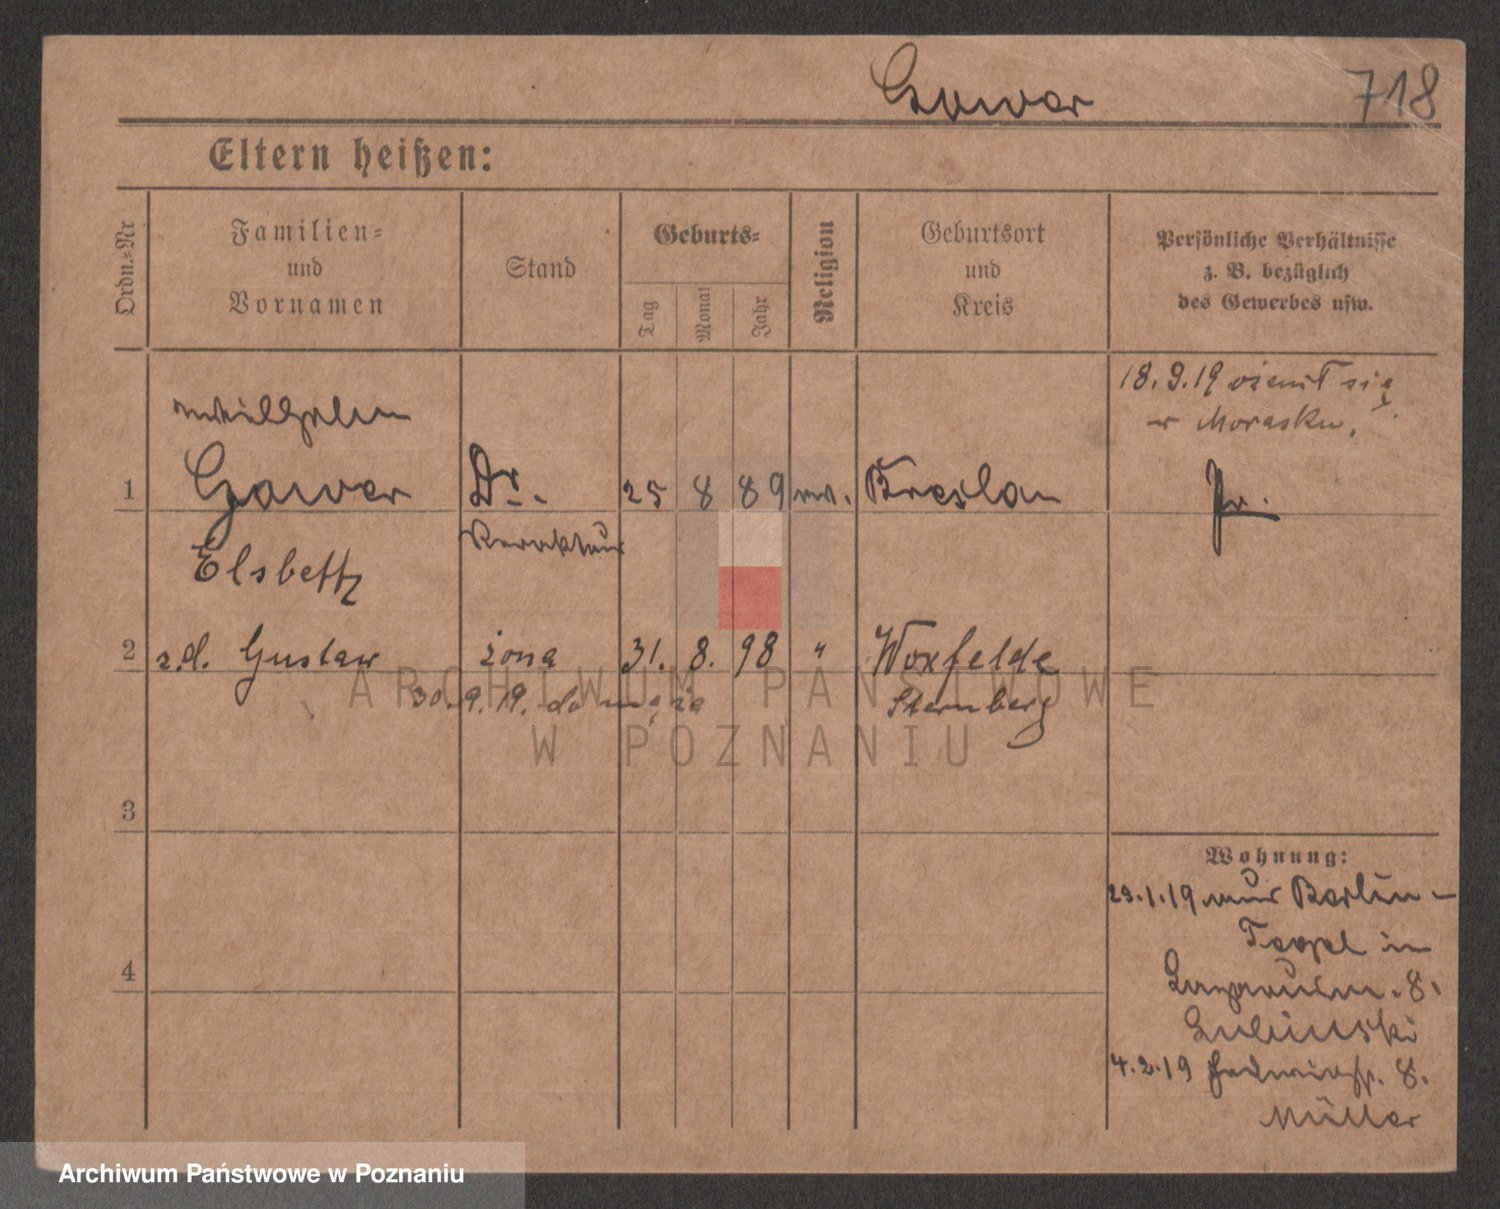 718
Eltern heißen:
Ordn.=Nr
Familien=
und
Vornamen
Stand
Geburts=
Tag
Monat
Jahr
Religion
Geburtsort
und
Kreis
Persönliche Verhältnisse
z. B. bezüglich
des Gewerbes usw.
18.9.19 ożenił się
w Morasku.
Wilhelm
1 Dr. 25 8 89 ev. Breslau
Redakteur
Elsbeth
2 z.d. Gustaw żona 31. 8. 98 " Woxfelde
30.9.19. do męża Sternberg
3
4
Wohnung:
23.1.19 aus Berlin-
Tegel in
8.
Lubinski
4.2.19 Hedwigstr. 8.
Müller
ARCHIWUM PAŃSTWOWE
W POZNANIU
Archiwum Państwowe w Poznaniu